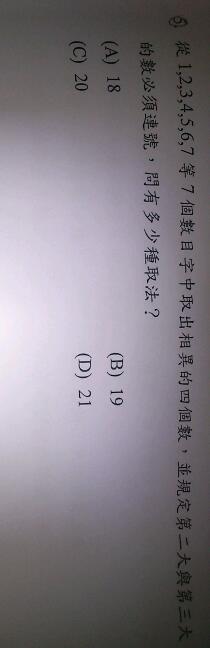 6. 從 1,2,3,4,5,6,7 等 7 個數目字中取出相異的四個數，並規定第二大與第三大
的數必須連號，問有多少種取法？
(A) 18 (B) 19
(C) 20 (D) 21